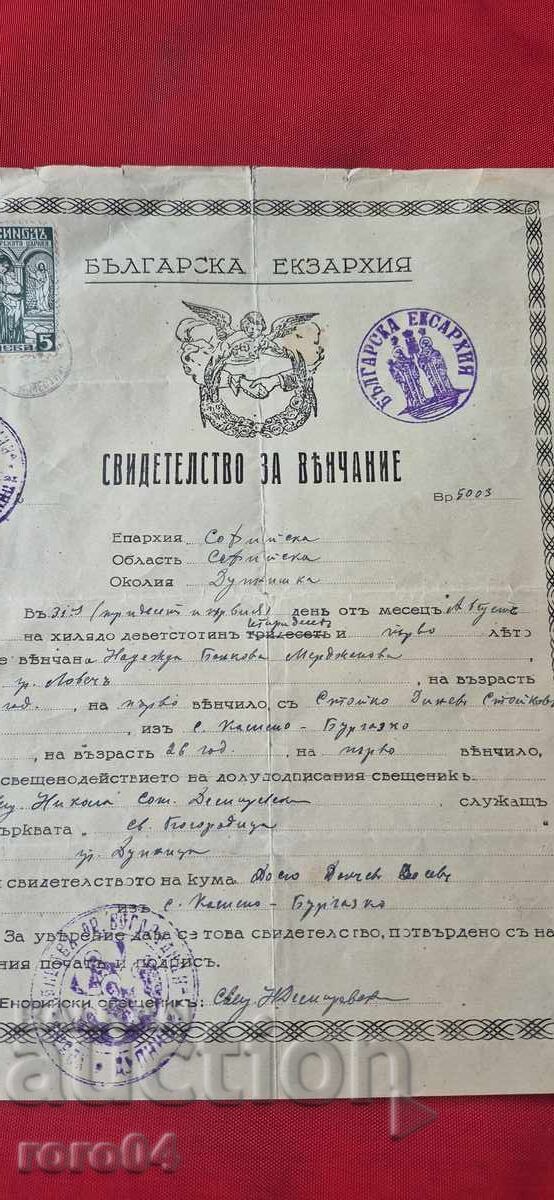 БЪЛГАРСКА ЕКЗАРХИЯ
5
БЪЛГАРСКА ЕКСАРХИЯ
СВИДЕТЕЛСТВО ЗА ВѢНЧАНИЕ
Вр 5003
Епархия Софийска
Область Софийска
Околия Дупнишка
Въ 31-й (тридесет и първия) день отъ месецъ Августъ
на хилядо деветстотинъ тридесеть четиридесеть и първо лѣто
е вѣнчана Надежда Банкова Мерджанова,
гр. Ловечъ, на възрасть
год., на първо вѣнчило, съ Стойко Динев Стойков
изъ с. Камено - Бургазко
, на възрасть 26 год., на първо вѣнчило,
свещенодействието на долуподписания свещеникъ
Никола служащъ
ърквата „ Св. Богородица
гр. Дупница
свидетелството на кума
изъ с. Камено - Бургазко
За увѣрение дава се това свидетелство, потвърдено съ на
ния печать и подпись.
Енорийски свещеникъ: Свещ
auction
roro04